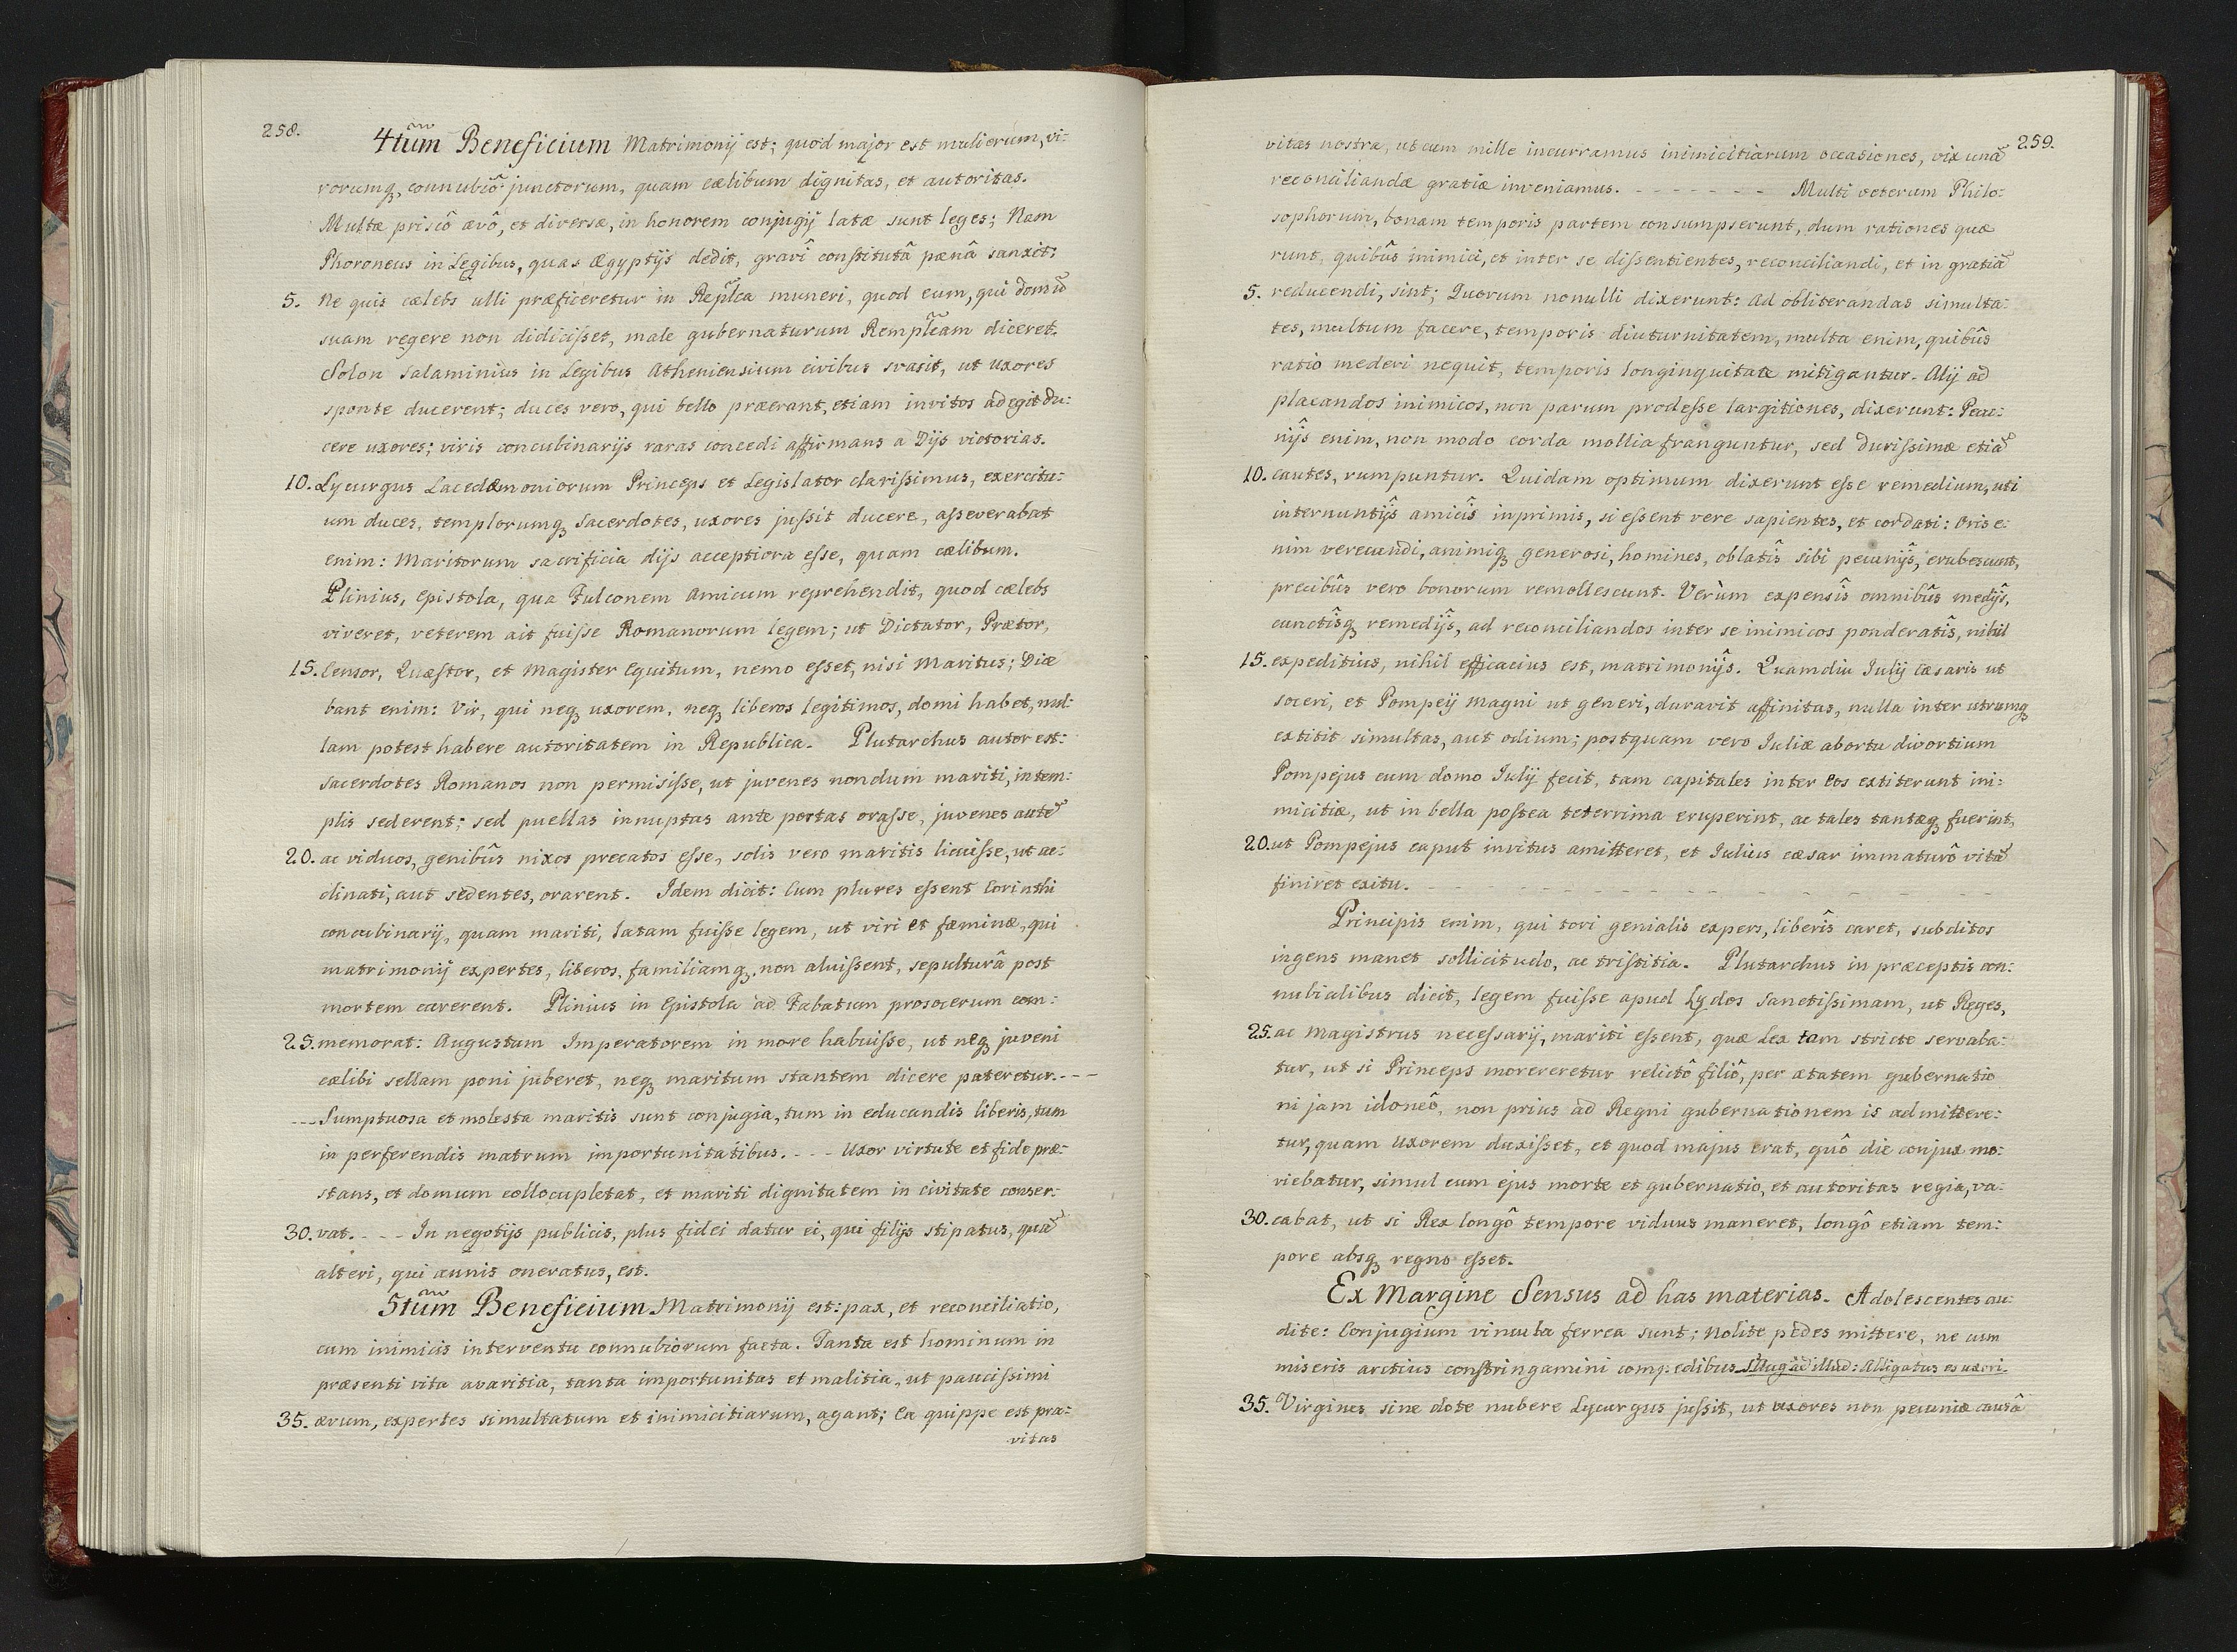 258.
4tum Beneficium Matrimonij est; quod major est mulierum, vi:
rorumq, connubiô junctorum, quam cælibum dignitas, et autoritas.
Multæ priscô ævô, et diversæ, in honorem conjugij latæ sunt leges; Nam
Phoroneus in Legibus, quas Ægyptijs dedit, gravî constitutâ pænâ sanxit:
5. Ne quis cælebs ulli præficeretur in Replca muneri, quod eum, qui domũ
suam regere non didicisset, male gubernaturum Remplcam diceret.
Solon Salaminius in Legibus Atheniensium civibus svasit, ut uxores
sponte ducerent; duces vero, qui bello præerant, etiam invitos adegit du:
cere uxores; viris concubinarijs raras concedi affirmans a Dijs victorias.
10. Lycurgus Lacedæmoniorum Princeps et Legislator clarissimus, exercitu:
um duces, templorumq sacerdotes, uxores jussit ducere, asseverabat
enim: Maritorum sacrificia dijs acceptiora esse, quam cælibum.
Plinius, Epistola, qua Fulconem Amicum reprehendit, quod cælebs
viveret, veterem ait fuisse Romanorum legem; ut Dictator, Prætor,
15. Censor, Quæstor, et Magister Equitum, nemo esset, nisi Maritus; Dice
bant enim: Vir, qui neq uxorem, neq liberos legitimos, domi habet, nul:
lam potest habere autoritatem in Republica. Plutarchus autor est:
sacerdotes Romanos non permisisse, ut juvenes nondum mariti, in tem:
plis sederent; sed puellas innuptas ante portas orasse, juvenes autẽ
20. ac viduos, genibûs nixos precatos esse, solis vero maritis licuisse, ut ac:
clinati, aut sedentes, orarent. Idem dicit: Cum plures essent Corinthi
concubinarij, quam mariti, latam fuisse legem, ut viri et fæminæ, qui
matrimonij expertes, liberos, familiamq, non aluissent, sepulturâ post
mortem carerent. Plinius in Epistola ad Fabatum prosocerum com:
25. memorat: Augustum Imperatorem in more habuisse, ut neq juveni
cælibi sellam poni juberet, neq maritum stantem dicere pateretur. - - -
- - - Sumptuosa et molesta maritis sunt conjugia, tum in educandis liberis, tum
in perferendis matrum importunitatibus. - - - Uxor virtute et fide præ:
stans, et domum collocupletat, et mariti dignitatem in civitate conser:
30. vat. - - - In negotijs publicis, plus fidei datur ei, qui filijs stipatus, quã
alteri, qui annis oneratus, est.
5tum Beneficium Matrimonij est: pax, et reconciliatio,
cum inimicis interventu connubiorum facta. Tanta est hominum in
præsenti vita avaritia, tanta importunitas et malitia, ut paucissimi
35. ævum, expertes simultatum et inimicitiarum, agant; Ea quippe est pra:
vitas
259.
vitas nostra, ut cum mille incurramus inimicitiarum occasiones, vix unã
reconciliandæ gratiæ inveniamus. - - - - - - - Multi veterum Philo:
sophorum, bonam temporis partem consumpserunt, dum rationes quæ
runt, quibûs inimici, et inter se dissentientes, reconciliandi, et in gratiã
5. reducendi, sint; Quorum nonulli dixerunt: Ad obliterandas simulta:
tes, multum facere, temporis diuturnitatem, multa enim, quibûs
ratio mederi nequit, temporis longinquitate mitigantur. Alij ad
placandos inimicos, non parum prodesse largitiones, dixerunt: Pecu:
nijs enim, non modo corda mollia franguntur, sed durissimæ etiã
10. cautes, rumpuntur. Quidam optimum dixerunt esse remedium, uti
internuntijs amicîs inprimis, si essent vere sapientes, et cordati: Oris e:
nim verecundi, animiq generosi, homines, oblatîs sibi pecunijs, erubescunt,
precibûs vero bonorum remollescunt. Verùm expensîs omnibûs medijs,
cunctîsq remedijs, ad reconciliandos inter se inimicos ponderatîs, nihil
15. expeditius, nihil efficacius est, matrimonijs. Quamdiu Iulij Cæsaris ut
soceri, et Pompeij Magni ut generi, duravit affinitas, nulla inter utrumq
extitit simultas, aut odium; postquam vero Iuliæ abortu divortium
Pompejus cum domo Iulij fecit, tam capitales inter eos extiterunt ini:
micitiæ, ut in bella postea teterrima eruperint, ac tales tantæq fuerint,
20. ut Pompejus caput invitus amitteret, et Iulius cæsar immaturô vitã
finiret exitu. - - - - - - - - - - - - - - -
Principis enim, qui tori genialis expers, liberîs caret, subditos
ingens manet sollicitudo, ac tristitia. Plutarchus in præceptis con:
nubialibus dicit, legem fuisse apud Lydos sanctissimam, ut Reges,
25. ac magistrus necessarij, mariti essent, quæ Lex tam stricte servaba:
tur, ut si Princeps morereretur relictô filiô, per ætatem gubernatio
ni jam idoneô, non prius ad Regni gubernationem is admittere:
tur, quam uxorem duxisset, et quod majus erat, quô die conjux mo:
riebatur, simul cum ejus morte et gubernatio, et autoritas regia, va:
30. cabat, ut si Rex longô tempore viduus maneret, longô etiam tem:
pore absq regno esset.
Ex Margine Sensus ad has materias. Adolescentes au:
dite: Conjugium vincula ferrea sunt; Nolite pedes mittere, ne cum
miseris arctius constringamini compedibus ad illud: Alligatus es uxori.
35. Virgines sine dote nubere Lycurgus jussit, ut uxores non pecuniæ causâ